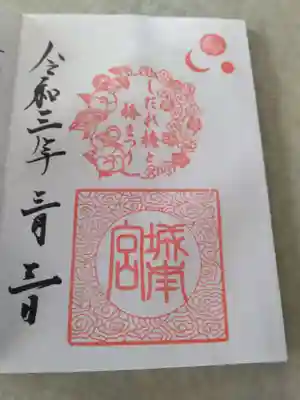 しだれ梅と
椿まつり
城南宮
令和三年 三月 三日